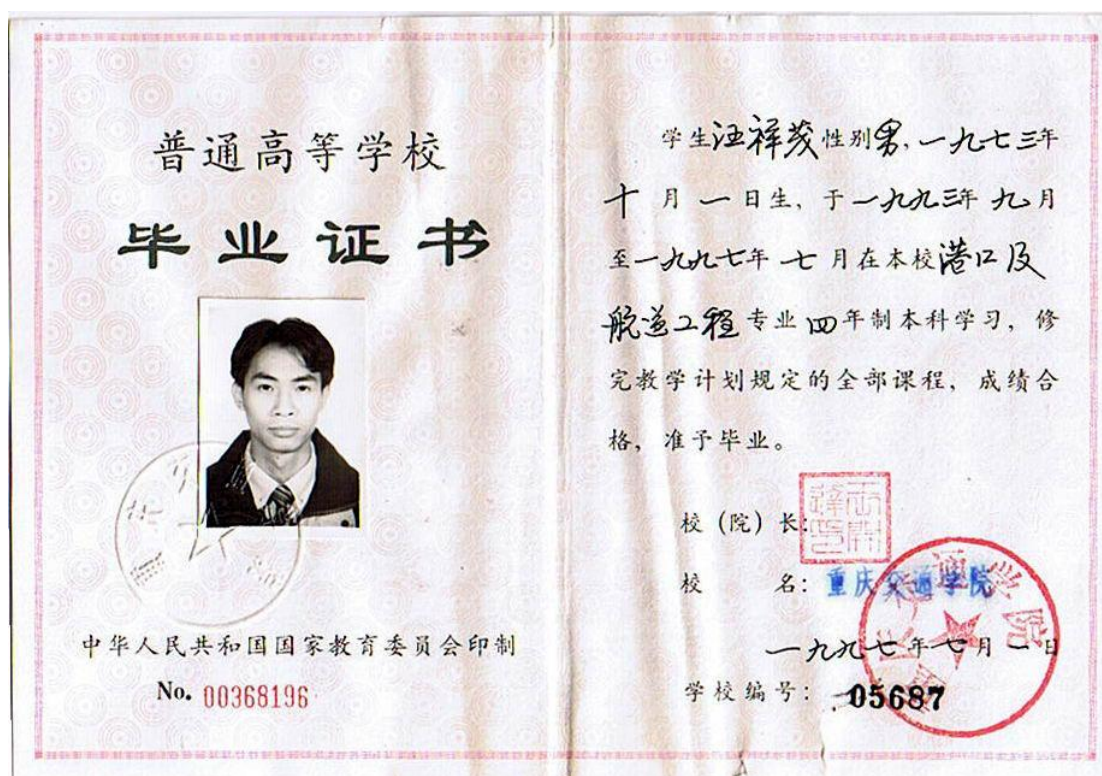 普通高等学校
毕业证书
中华人民共和国国家教育委员会印制
No. 00368196
学生汪祥茂性别男,一九七三年
十月一日生,于一九九三年九月
至一九九七年七月在本校港口及
航道工程专业四年制本科学习,修
完教学计划规定的全部课程,成绩合
格,准予毕业。
校(院)长:
校名:重庆交通学院
一九九七年七月一日
学校编号:05687